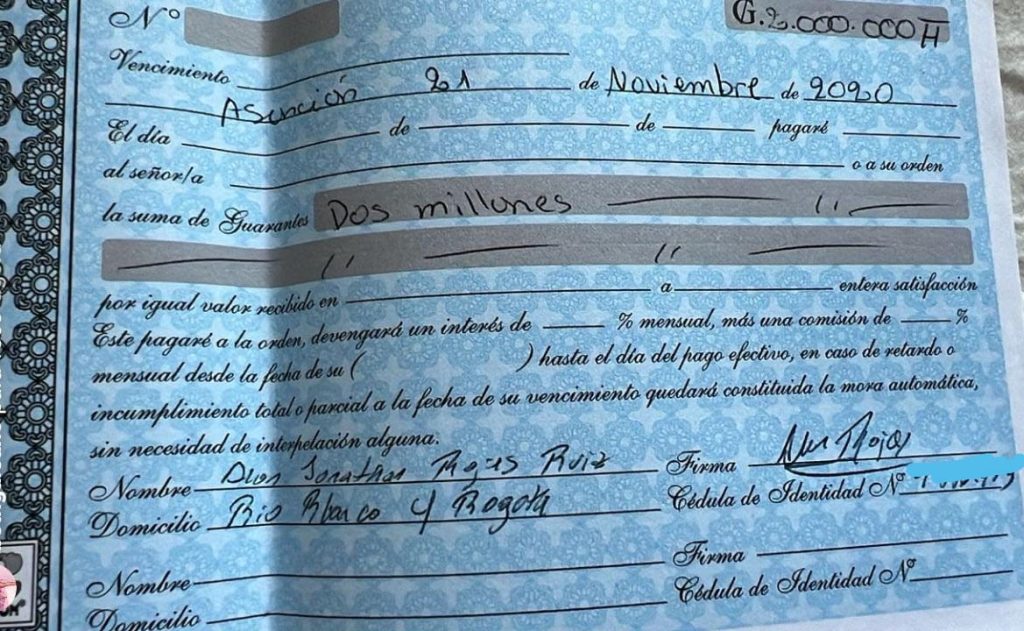 Nº G. 2.000.000 #
Vencimiento
Asunción 21 de Noviembre de 2020
El día de de pagaré
al señor/a o a su orden
la suma de Guaraníes Dos millones
por igual valor recibido en a entera satisfacción
Este pagaré a la orden, devengará un interés de % mensual, más una comisión de %
mensual desde la fecha de su ( ) hasta el día del pago efectivo, en caso de retardo o
incumplimiento total o parcial a la fecha de su vencimiento quedará constituida la mora automática,
sin necesidad de interpelación alguna.
Nombre Jonathan Rojas Ruiz Firma
Domicilio Rio Blanco y Bogota Cédula de Identidad Nº
Nombre Firma
Domicilio Cédula de Identidad Nº